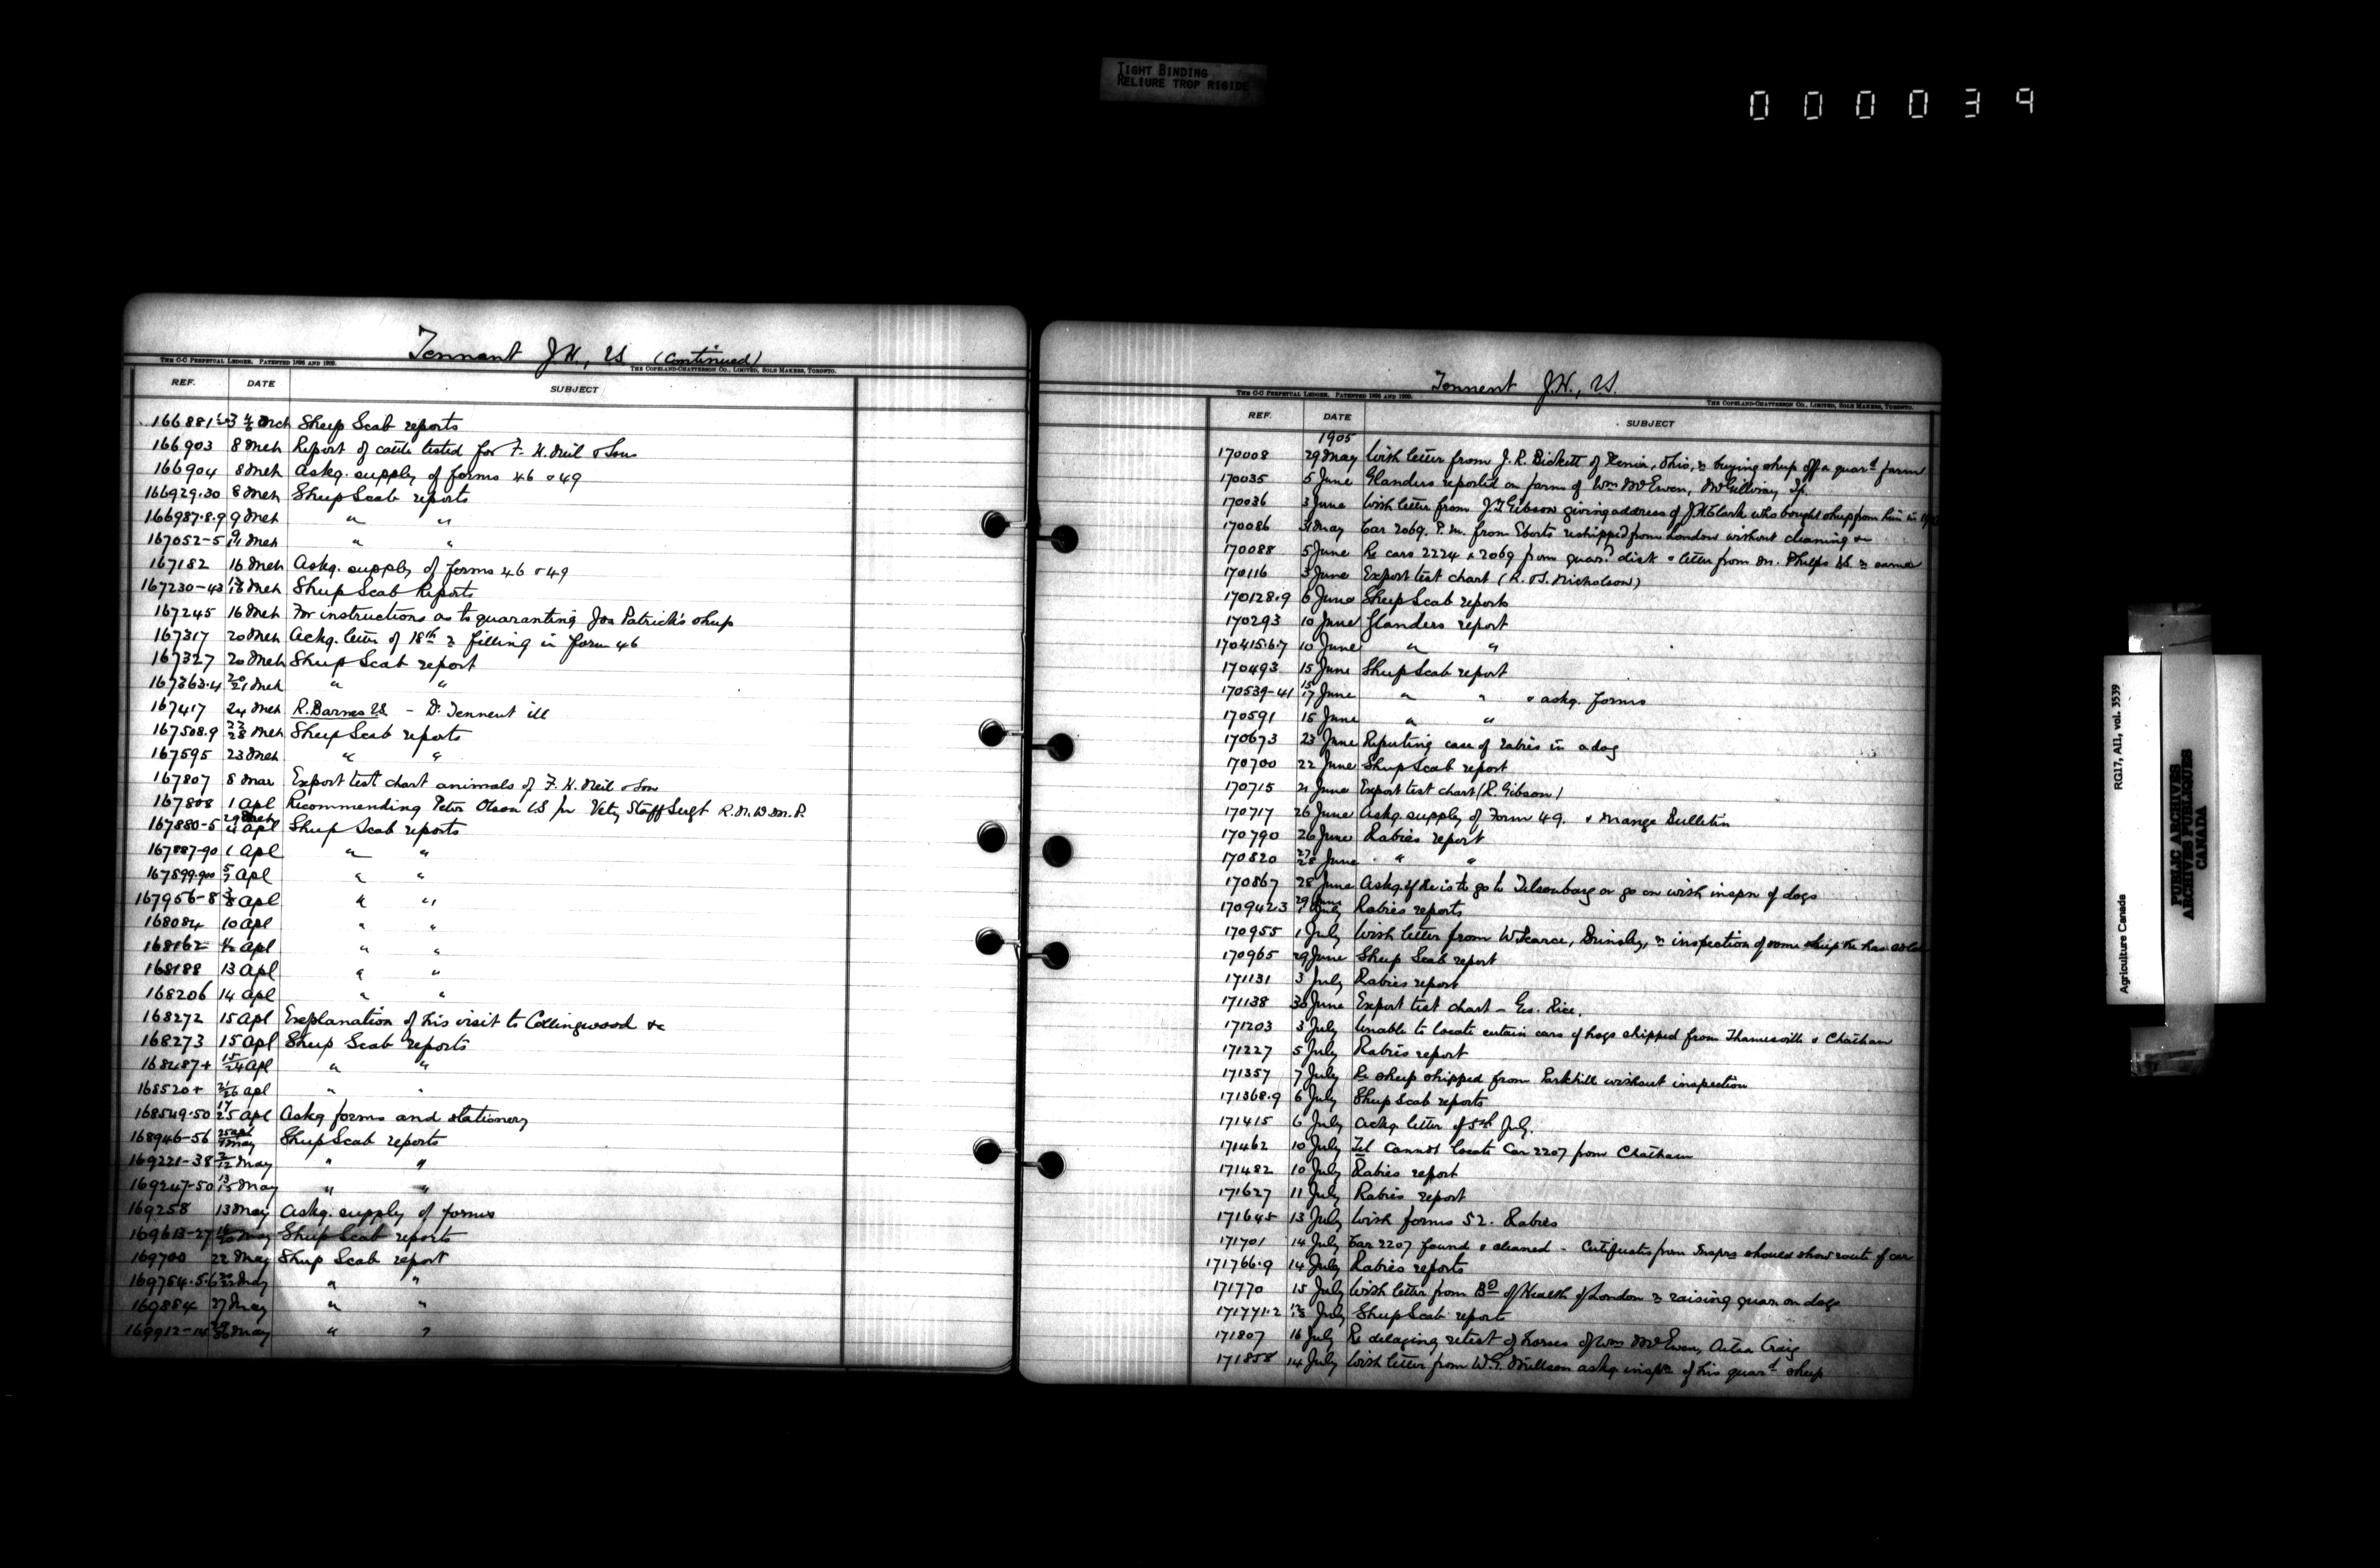 TIGHT BINDING
RELIURE TROP RIGIDE
000039
Tennant J.H., VS. (Continued)
THE C-C PERPETUAL LEDGER. PATENTED 1896 AND 1900.
THE COPELAND-CHATTERSON CO., LIMITED, SOLE MAKERS, TORONTO.
REF. DATE SUBJECT
166881 3 Mch Sheep Scab reports
166903 8 Mch Report of cattle tested for F. H. Neil & Sons
166904 8 Mch Askg. supply of forms 46 & 49
166929.30 8 Mch Sheep Scab reports
166987.8.9 9 Mch " "
167052-5 9/11 Mch " "
167182 16 Mch Askg. supply of forms 46 & 49
167230-43 Mch Sheep Scab Reports
167245 16 Mch For instructions as to quaranting Jos Patrick's sheep
167317 20 Mch Ackg. letter of 18th re filling in form 46
167327 20 Mch Sheep Scab report
167363.4 20/21 Mch " "
167417 24 Mch R. Barnes VS. - Dr. Tennent ill
167508.9 Mch Sheep Scab reports
167595 23 Mch " "
167807 8 Mar Export test chart animals of F. H. Neil & Son
167808 1 Apl Recommending Peter Olson VS for Vety Staff Sergt R.N.W.M.P.
167880-5 29 Mch/4 Apl Sheep Scab reports
167887-90 1 Apl " "
167899.900 5/7 Apl " "
167956-8 Apl " "
168084 10 Apl " "
168162 Apl " "
168188 13 Apl " "
168206 14 Apl " "
168272 15 Apl Explanation of his visit to Collingwood &c
168273 15 Apl Sheep Scab reports
168487+ 15/24 Apl " "
168520+ 21/26 Apl " "
168549.50 17/25 Apl Askg forms and stationery
168946-56 25 Apl/9 May Sheep Scab reports
169221-38 May " "
169247-50 13/15 May " "
169258 13 May Askg. supply of forms
169613-27 May Sheep Scab reports
169700 22 May Sheep Scab report
169754.5.6 20/22 May " "
169884 27 May " "
169912-14 May " "
Tennent J.H., VS.
THE C-C PERPETUAL LEDGER. PATENTED 1896 AND 1900.
THE COPELAND-CHATTERSON CO., LIMITED, SOLE MAKERS, TORONTO.
REF. DATE SUBJECT
1905
170008 29 May With letter from J. R. Bickett of Xenia, Ohio, re buying sheep off a quard farm
170035 5 June Glanders reported on farms of Wm McEwen, McGillivray Tp.
170036 3 June With letter from J. T. Gibson giving address of J. H. Clark who bought sheep from him in
170086 31 May Car 2069. P.M. from Eberts reshipped from London without cleaning &c
170088 5 June Re cars 2224 & 2069 from quard dist & letter from Dr. Phelps VS. re same
170116 3 June Export test chart (R. & S. Nicholson)
170128.9 6 June Sheep Scab reports
170293 10 June Glanders report
170415.6.7 10 June " "
170493 15 June Sheep Scab report
170539-41 15/17 June " " & askg. forms
170591 15 June " "
170673 23 June Reporting case of rabies in a dog
170700 22 June Sheep Scab report
170715 21 June Export test chart (R. Gibson)
170717 26 June Askg. supply of Form 49. & Mange Bulletin
170790 26 June Rabies report
170820 27/28 June " "
170867 28 June Askg. if he is to go to Tilsonburg or go on with inspn of dogs
170942.3 29 June/1 July Rabies reports
170955 1 July With letter from W. Pearce, Brinsley, re inspection of some sheep he has sold
170965 29 June Sheep Scab report
171131 3 July Rabies report
171138 30 June Export test chart - Geo. Rice.
171203 3 July Unable to locate certain cars of hogs shipped from Thamesville & Chatham
171227 5 July Rabies report
171357 7 July Re sheep shipped from Parkhill without inspection
171368.9 6 July Sheep Scab reports
171415 6 July Ackg. letter of 5th July.
171462 10 July Tel Cannot locate Car 2207 from Chatham
171482 10 July Rabies report
171627 11 July Rabies report
171645 13 July With forms 52. Rabies
171701 14 July Car 2207 found & cleaned - Certificates from Insprs should show route of car
171766.9 14 July Rabies reports
171770 15 July With letter from Bd of Health of London re raising quar. on dogs
171771.2 July Sheep Scab reports
171807 16 July Re delaying retest of horses of Wm McEwen, Ailsa Craig
171858 14 July With letter from W. S. askg inspn of his quard sheep
Agriculture Canada
RG17, AII, vol. 3539
PUBLIC ARCHIVES
ARCHIVES PUBLIQUES
CANADA